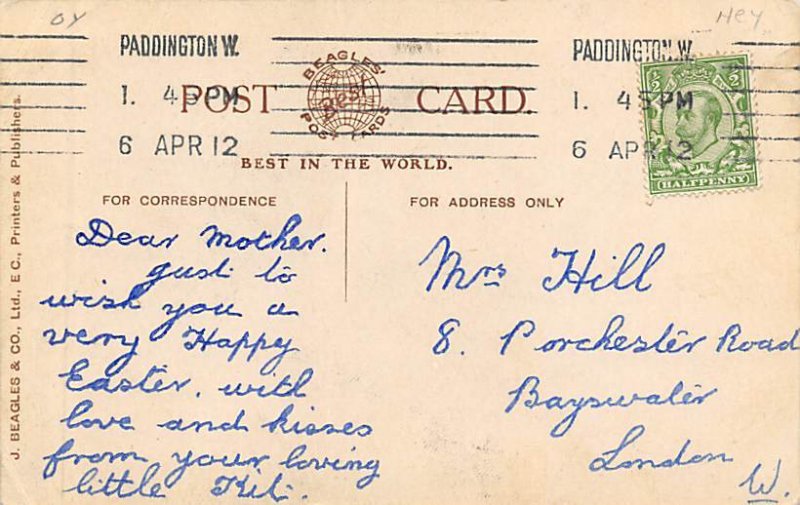 oy
Hey
PADDINGTON W.
1. 45 PM
6 APR 12
PADDINGTON. W.
1. 45 PM
6 APR 12
POST CARD.
BEAGLES'
Best
POST CARDS
BEST IN THE WORLD.
½ ½
HALFPENNY
FOR CORRESPONDENCE
FOR ADDRESS ONLY
Dear Mother.
just to
wish you a
very Happy
Easter. with
love and kisses
from your loving
little Kit.
Mrs Hill
8. Porchester Road
Bayswater
London
W.
J. BEAGLES & CO., Ltd., E.C., Printers & Publishers.